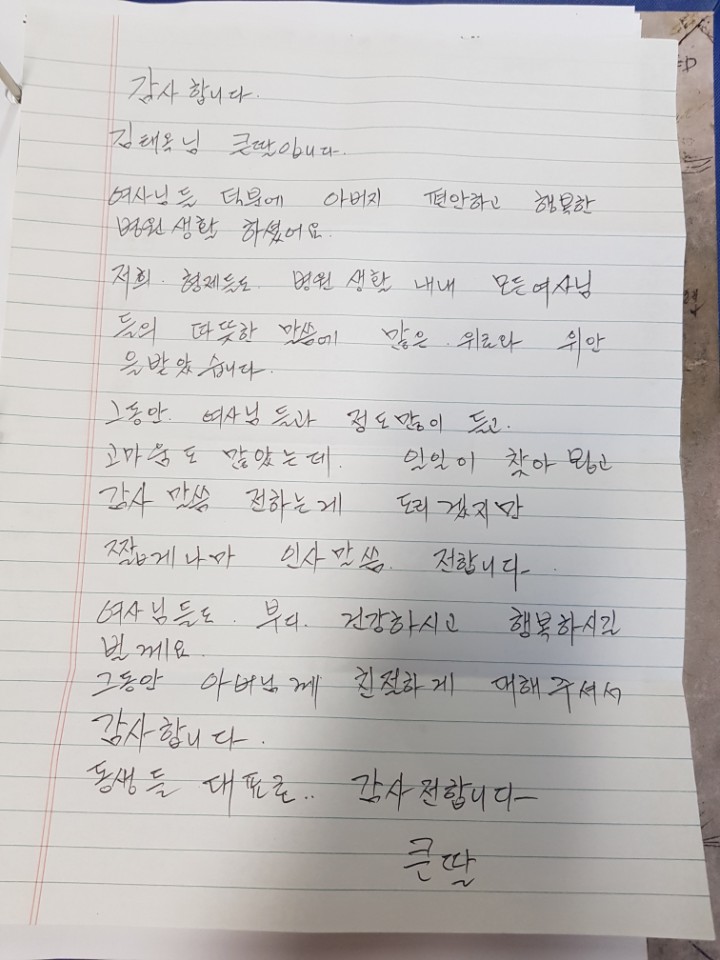 감사합니다.
김태옥님 큰딸입니다.
여사님들 덕분에 아버지 편안하고 행복한
병원생활 하셨어요.
저희. 형제들도. 병원생활 내내 모든여사님
들의 따뜻한 말씀에 많은. 위로와 위안
을받았습니다.
그동안. 여사님들과 정도많이 들고.
고마움도 많았는데. 일일이 찾아뵙고
감사말씀 전하는게 도리겠지만
짧게나마 인사말씀. 전합니다-
여사님들도. 부디. 건강하시고 행복하시길
빌께요.
그동안 아버님께 친절하게 대해주셔서
감사합니다.
동생들 대표로.. 감사전합니다-
큰딸